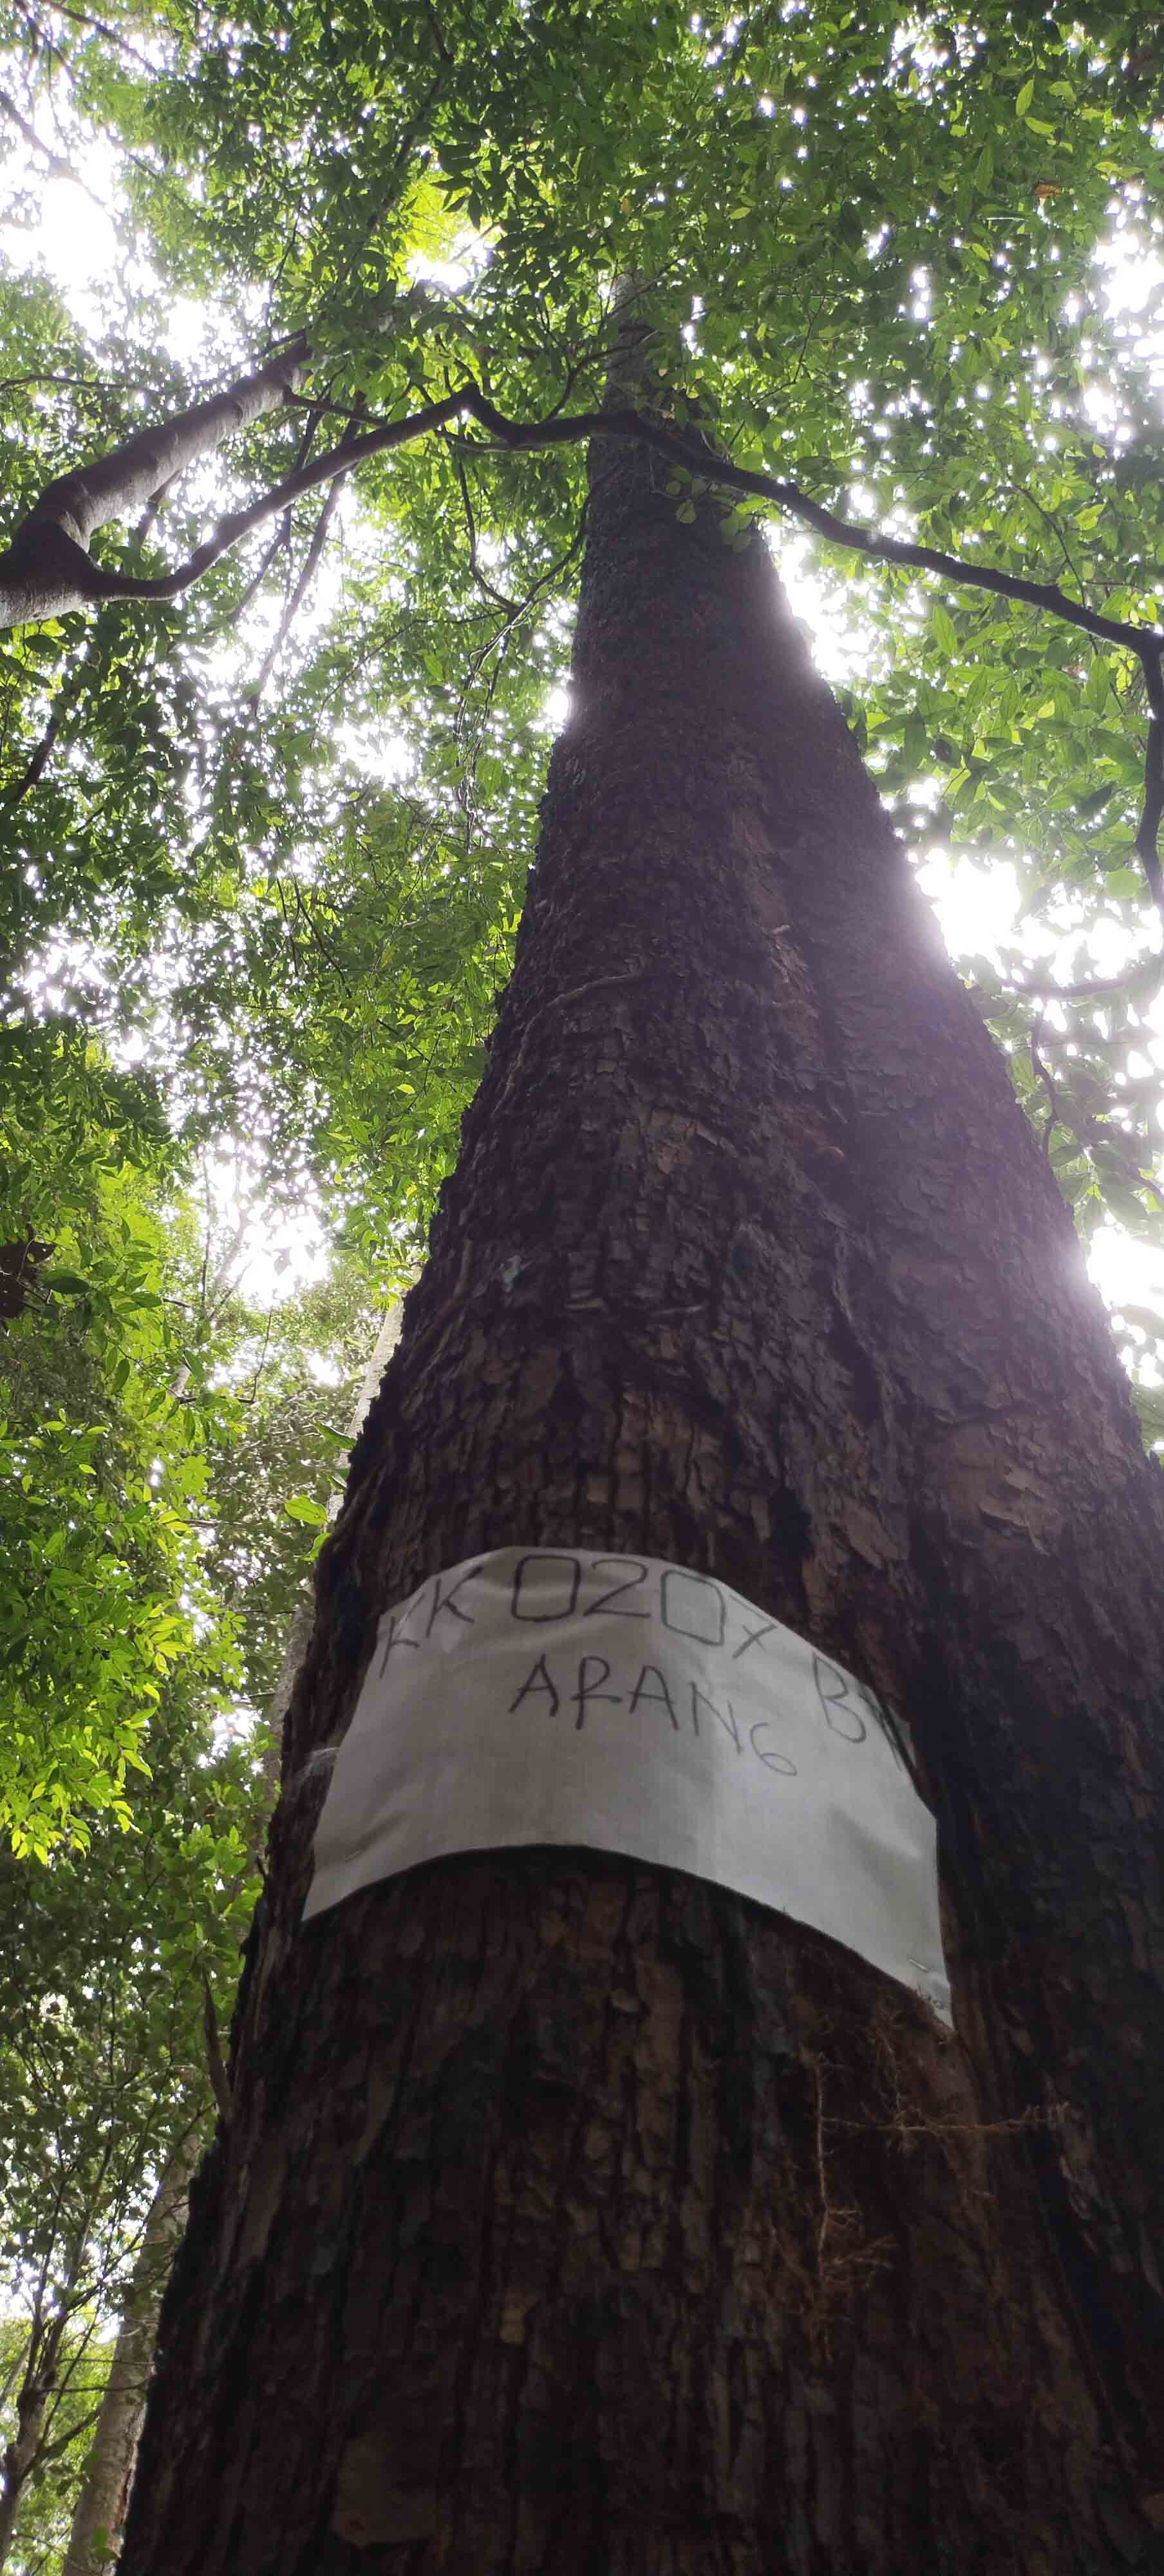 KK 0207 B
ARANG